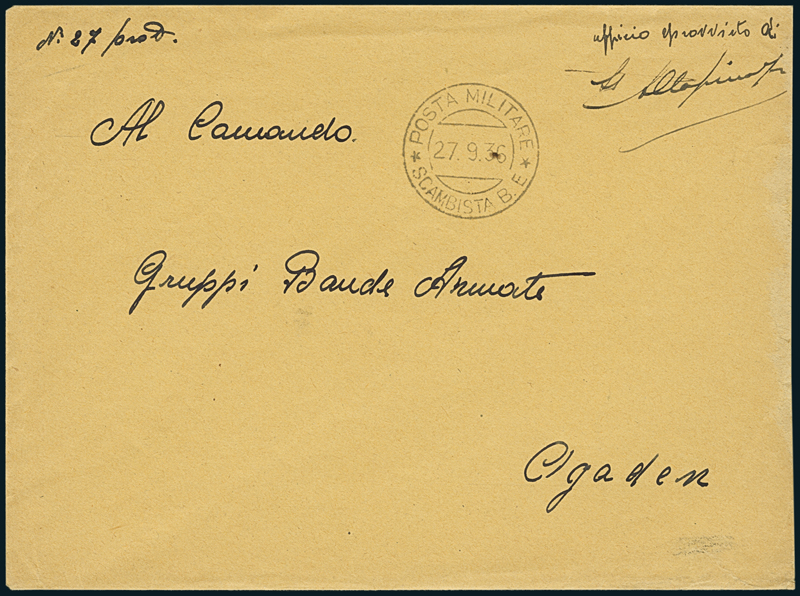 N. 27 prot.
ufficio sprovvisto di
Al Comando.
POSTA MILITARE
27.9.36
* SCAMBISTA B. E *
Gruppi Bande Armate
Ogaden